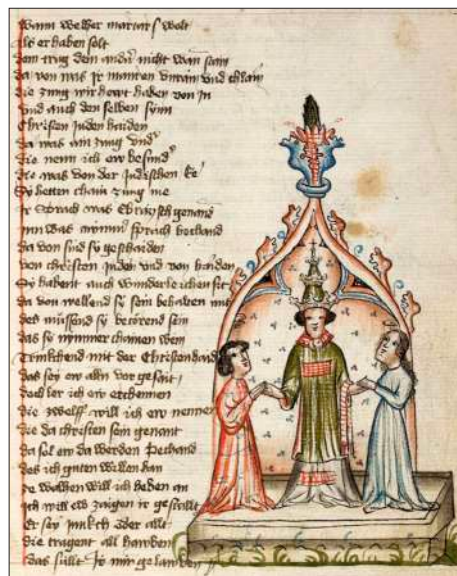 Wann welher marnar s wolt
Als er haben solt
Dem trug den andn nicht wan stain
da von was Jr mauren vnrain vnd chlain
die zung wir hewt haben von jn
vnd auch den selben synn
Christen Juden haiden
da was ain zung vnd
die nenn ich ew besund
die was von der Judischen Ee
Sy hetten chain zung me
Jr Sprach was Ebraysch genand
von sind sy geschaiden
von christen Juden vnd von haiden
Sy habent auch wunderleichen sit
da von wellend sy sein behaben mit
des müssend sy
das sy nymmer chainen wein
Trinkhend mit der Christenhait
das sey ew alln vor gesait
doch ler ich ew erchennen
die zwelff will ich ew nennen
die da christen sein genant
da sol ew da werden Bechand
des ich guten willen han
Ee walhen will ich heben an
ich will ew zaigen jr gestallt
Er sey junkch oder allt
die tragent all hawben
das sullt jr mir gelawben